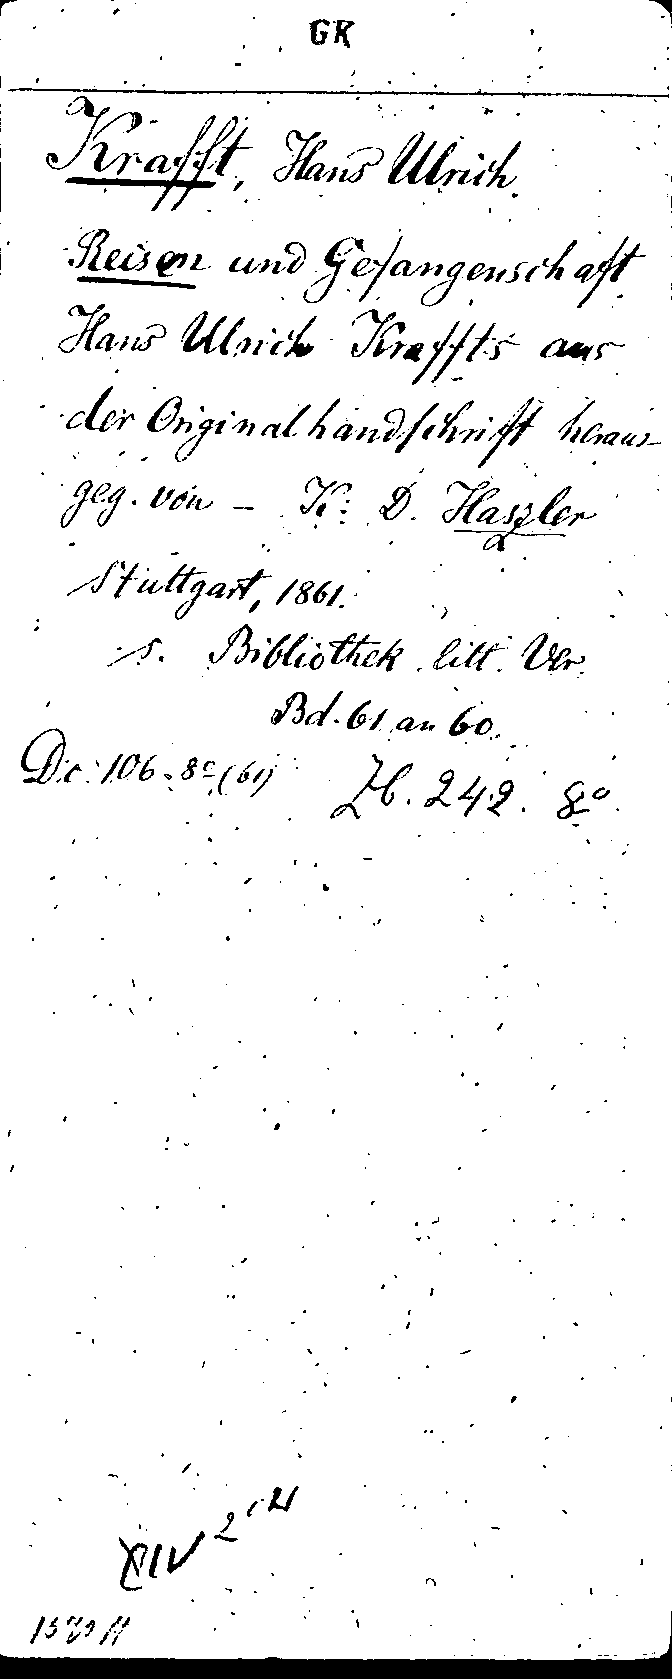 GK
Krafft, Hans Ulrich.
Reisen und Gefangenschaft
Hans Ulrich Kraffts aus
der Originalhandschrift heraus-
geg. von – K. D. Haszler
Stuttgart, 1861.
s. Bibliothek litt. Ver.
Bd. 61 an 60.
Dc. 106. 8º (61) Zb. 242. 8º
XIV 2